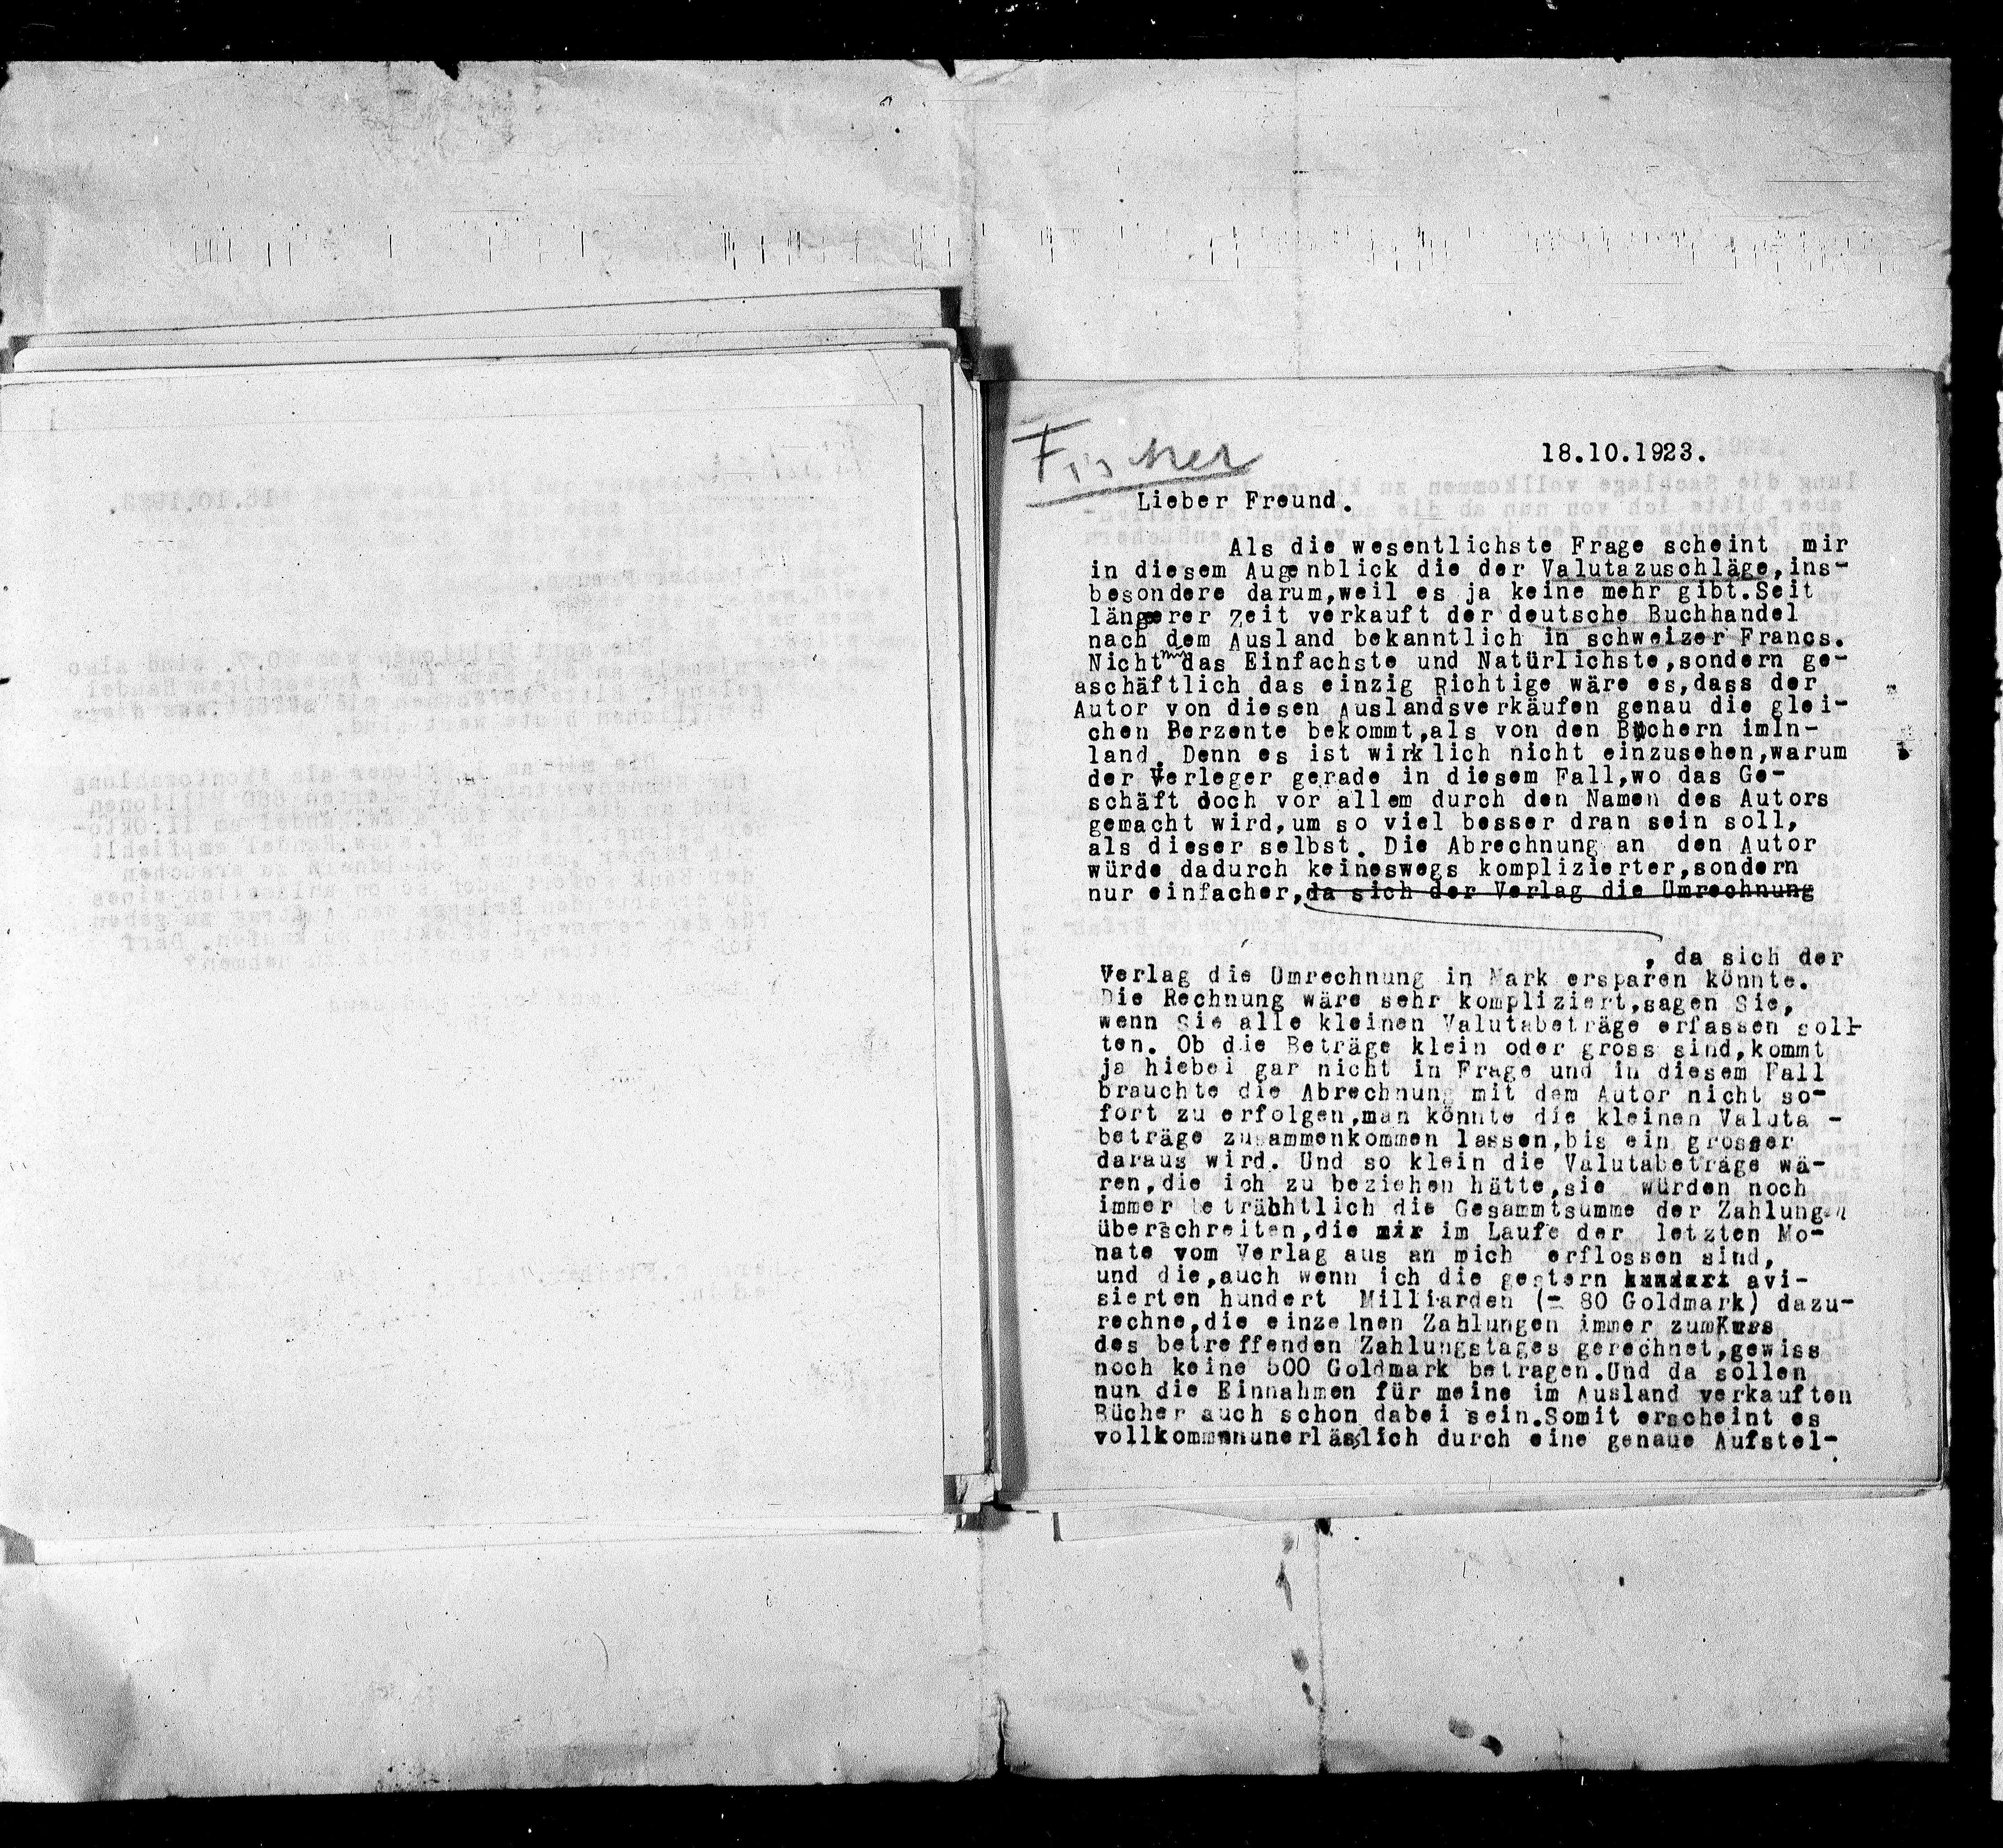 Fischer
18.10.1923.
Lieber Freund.
Als die wesentlichste Frage scheint mir
in diesem Augenblick die der Valutazuschläge,ins-
besondere darum,weil es ja keine mehr gibt.Seit
längerer Zeit verkauft der deutsche Buchhandel
nach dem Ausland bekanntlich in schweizer Francs.
Nicht nur das Einfachste und Natürlichste,sondern ge-
aschäftlich das einzig Richtige wäre es,dass der
Autor von diesen Auslandsverkäufen genau die glei-
chen Perzente bekommt,als von den Büchern imIn-
land. Denn es ist wirklich nicht einzusehen,warum
der Verleger gerade in diesem Fall,wo das Ge-
schäft doch vor allem durch den Namen des Autors
gemacht wird,um so viel besser dran sein soll,
als dieser selbst. Die Abrechnung an den Autor
würde dadurch keineswegs komplizierter,sondern
nur einfacher,da sich der Verlag die Umrechnung
, da sich der
Verlag die Umrechnung in Mark ersparen könnte.
Die Rechnung wäre sehr kompliziert,sagen Sie,
wenn Sie alle kleinen Valutabeträge erfassen soll-
ten. Ob die Beträge klein oder gross sind,kommt
ja hiebei gar nicht in Frage und in diesem Fall
brauchte die Abrechnung mit dem Autor nicht so-
fort zu erfolgen,man könnte die kleinen Valuta -
beträge zusammenkommen lassen,bis ein grosser
daraus wird. Und so klein die Valutabeträge wä-
ren,die ich zu beziehen hätte,sie würden noch
immer beträchtlich die Gesammtsumme der Zahlungen
überschreiten,die mir im Laufe der letzten Mo-
nate vom Verlag aus an mich erflossen sind,
und die,auch wenn ich die gestern hundert avi-
sierten hundert Milliarden (= 80 Goldmark) dazu-
rechne,die einzelnen Zahlungen immer zumKurs
des betreffenden Zahlungstages gerechnet,gewiss
noch keine 500 Goldmark betragen.Und da sollen
nun die Einnahmen für meine im Ausland verkauften
Bücher auch schon dabei sein.Somit erscheint es
vollkommenunerlässlich durch eine genaue Aufstel-